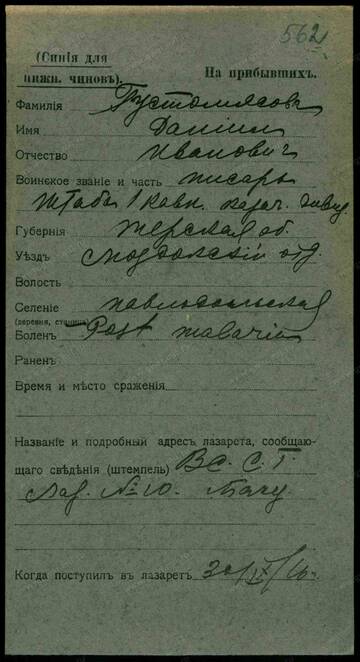 562
(Синія для
нижн. чиновъ).
На прибывшихъ.
Фамилія Густомясовъ
Имя Даніилъ
Отчество Ивановичъ
Воинское званіе и часть писарь
Штаба 1 Кавк. казач. дивиз.
Губернія Терская об.
Уѣздъ Моздокскій отд.
Волость
Селеніе Павлодольская
(деревня, станица)
Боленъ Post malaria
Раненъ
Время и мѣсто сраженія
Названіе и подробный адресъ лазарета, сообщаю-
щаго свѣдѣнія (штемпель) В. С. Г.
Лаз. №10.
Когда поступилъ въ лазаретъ